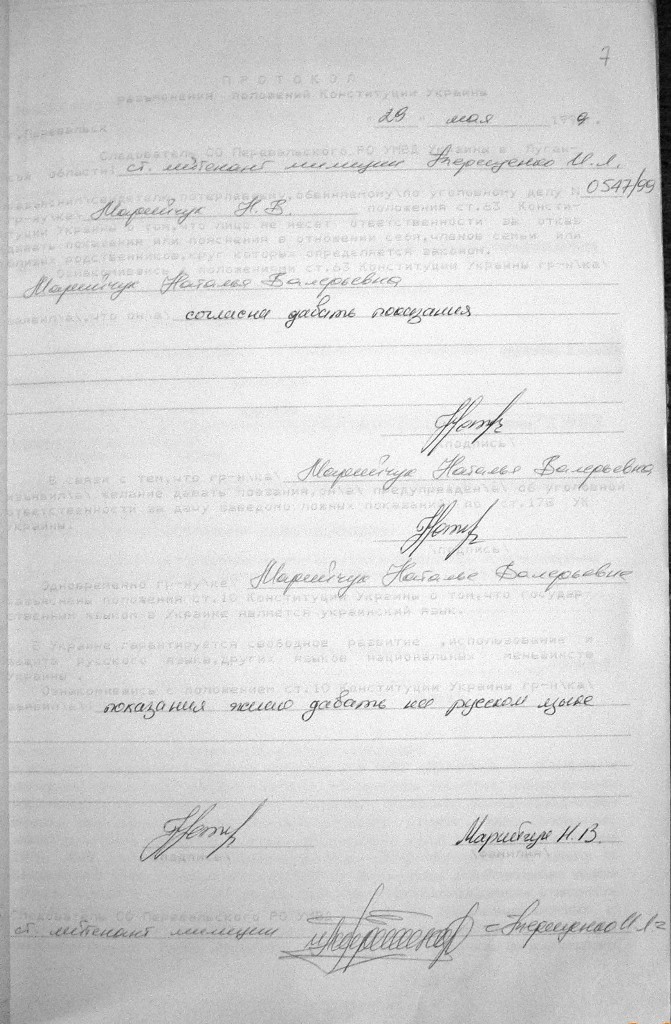 7
П Р О Т О К О Л
разъяснения положений Конституции Украины
г.Перевальск "29" мая 1999г.
Следователь СО Перевальского РО УМВД Украины в Луган-
ской области ст. лейтенант милиции И.Л.
разъяснил свидетелю,потерпевшему,обвиняемому\по уголовному делу N 0547/99
гр-ну\ке\ Марийчук Н. В. положения ст.63 Консти-
туции Украины о том,что лицо не несет ответственности за отказ
давать показания или пояснения в отношении себя,членов семьи или
близких родственников,круг которых определяется законом.
Ознакомившись с положениями ст.63 Конституции Украины гр-н\ка\
Марийчук Наталья Валерьевна
заявил\а\,что он\а\ согласна давать показания
\подпись\
В связи с тем,что гр-н\ка\ Марийчук Наталья Валерьевна
изъявил\а\ желание давать показания,он\а\ предупрежден\а\ об уголовной
ответственности за дачу заведомо ложных показаний по ст.178 УК
Украины.
\подпись\
Одновременно гр-ну\ке\ Марийчук Наталье Валерьевне
разъяснены положения ст.10 Конституции Украины о том,что государ-
ственным языком в Украине является украинский язык.
В Украине гарантируется свободное развитие ,использование и
защита русского языка,других языков национальных меньшинств
Украины .
Ознакомившись с положением ст.10 Конституции Украины гр-н\ка\
заявил\а\ показания желаю давать на русском языке
Марийчук Н.В.
\подпись\ \фамилия\
Следователь СО Перевальского РО УМВД
ст. лейтенант милиции И.Л.